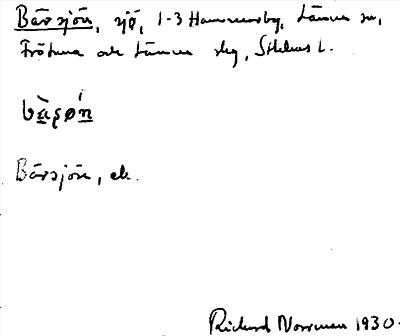 Bårsjön, sjö, 1-3 Hammersby, Länna sn,
Frötuna och Länna skg, Sthlms l.
bàsǿn
Bårsjön, ek.
Richard Norrman 1930.